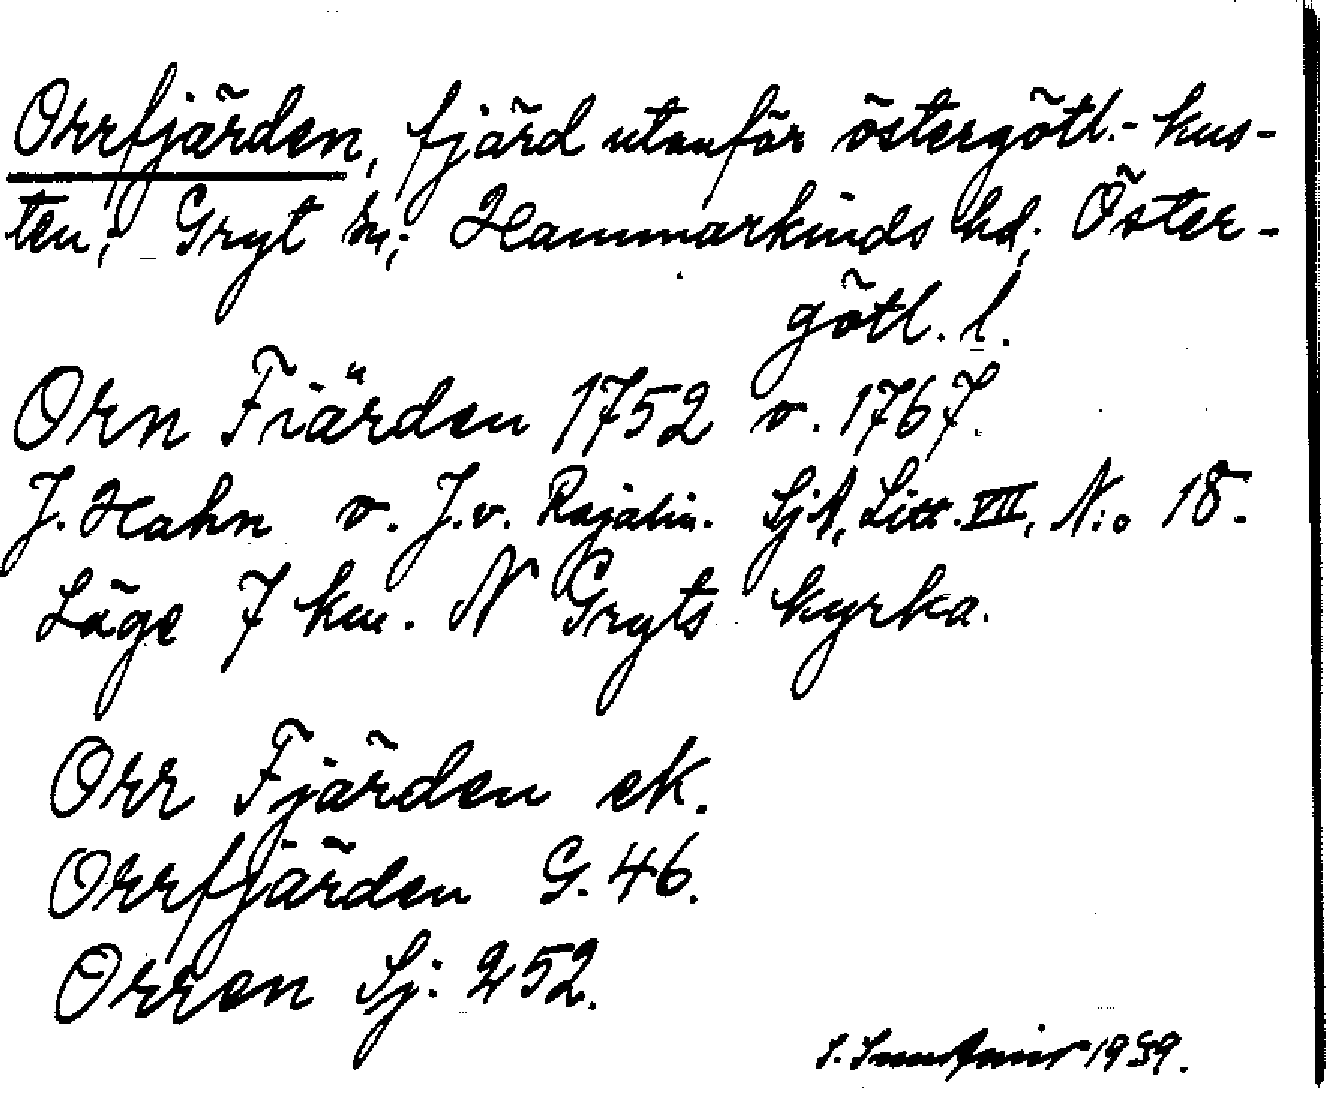 Orrfjärden, fjärd utanför östergötl.- kus-
ten; Gryt sn; Hammarkinds hd; Öster-
götl. l.
Orn Fiärden 1752 o. 1767.
J. Hahn o. J.v. Rajalin. SjA, Litt. VII, N:o 18.
Läge 7 km. N Gryts kyrka.
Orr Fjärden ek.
Orrfjärden G. 46.
Orren Sj. 252.
S. 1939.